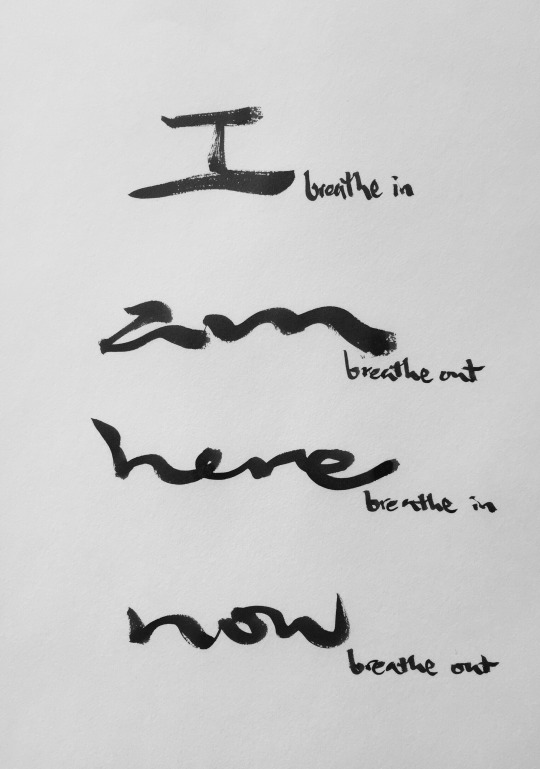 I
breathe in
am
breathe out
here
breathe in
now
breathe out